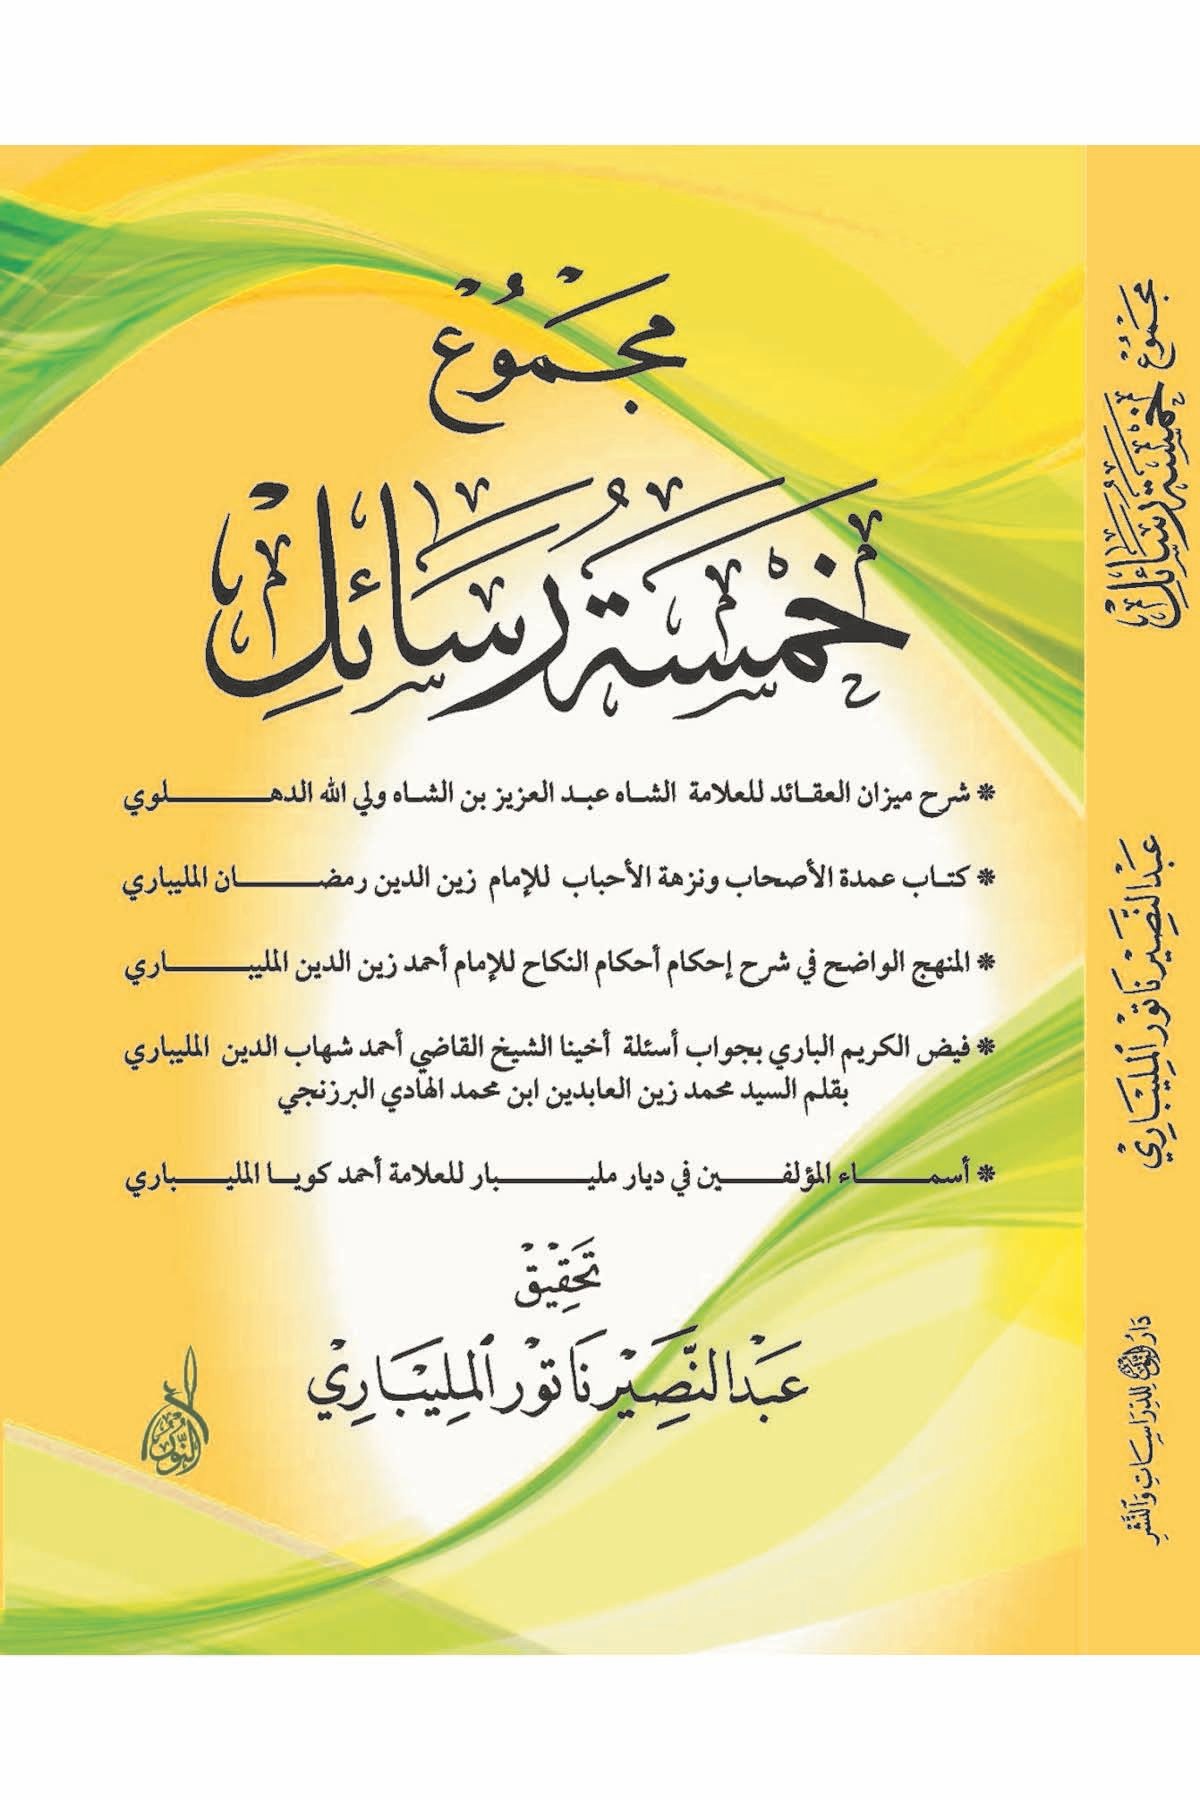 مَجْمُوْع
خَمْسَةُ رَسَائِلِ
* شرح ميزان العقائد للعلامة الشاه عبد العزيز بن الشاه ولي الله الدهلوي
* كتاب عمدة الأصحاب ونزهة الأحباب للإمام زين الدين رمضان المليباري
* المنهج الواضح في شرح إحكام أحكام النكاح للإمام أحمد زين الدين المليباري
* فيض الكريم الباري بجواب أسئلة أخينا الشيخ القاضي أحمد شهاب الدين المليباري
بقلم السيد محمد زين العابدين ابن محمد الهادي البرزنجي
* أسماء المؤلفين في ديار مليبار للعلامة أحمد كويا المليباري
تَحْقِيْق
عَبْدُ النَّصِيْر نَاتُوْر الْمِلِيْبَارِيْ
النُّوْر
مَجْمُوْع خَمْسَةُ رَسَائِلِ
عَبْدُ النَّصِيْر نَاتُوْر الْمِلِيْبَارِيْ
دَارُ النُّوْر لِلدِّرَاسَاتِ وَالنَّشْرِ